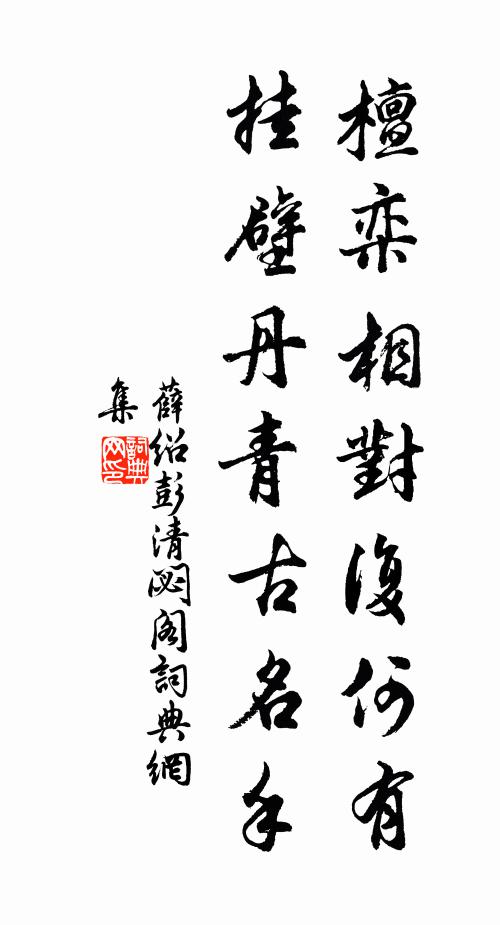 檀奕相對復何有
挂壁丹青古名手
薛绍彭清閟阁詞典網
集
詞典網印